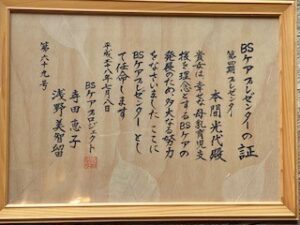 BSケアプレゼンターの証
第四期プレゼンター
本間光代殿
貴女は幸せな母乳育児支
援を理念とするBSケアの
発展のため、多大なる努力
をなさいました ここに
BSケアプレゼンターとし
て任命します
平成二十八年七月八日
BSケアプロジェクト
寺田恵子
浅野美智留
第六十九号